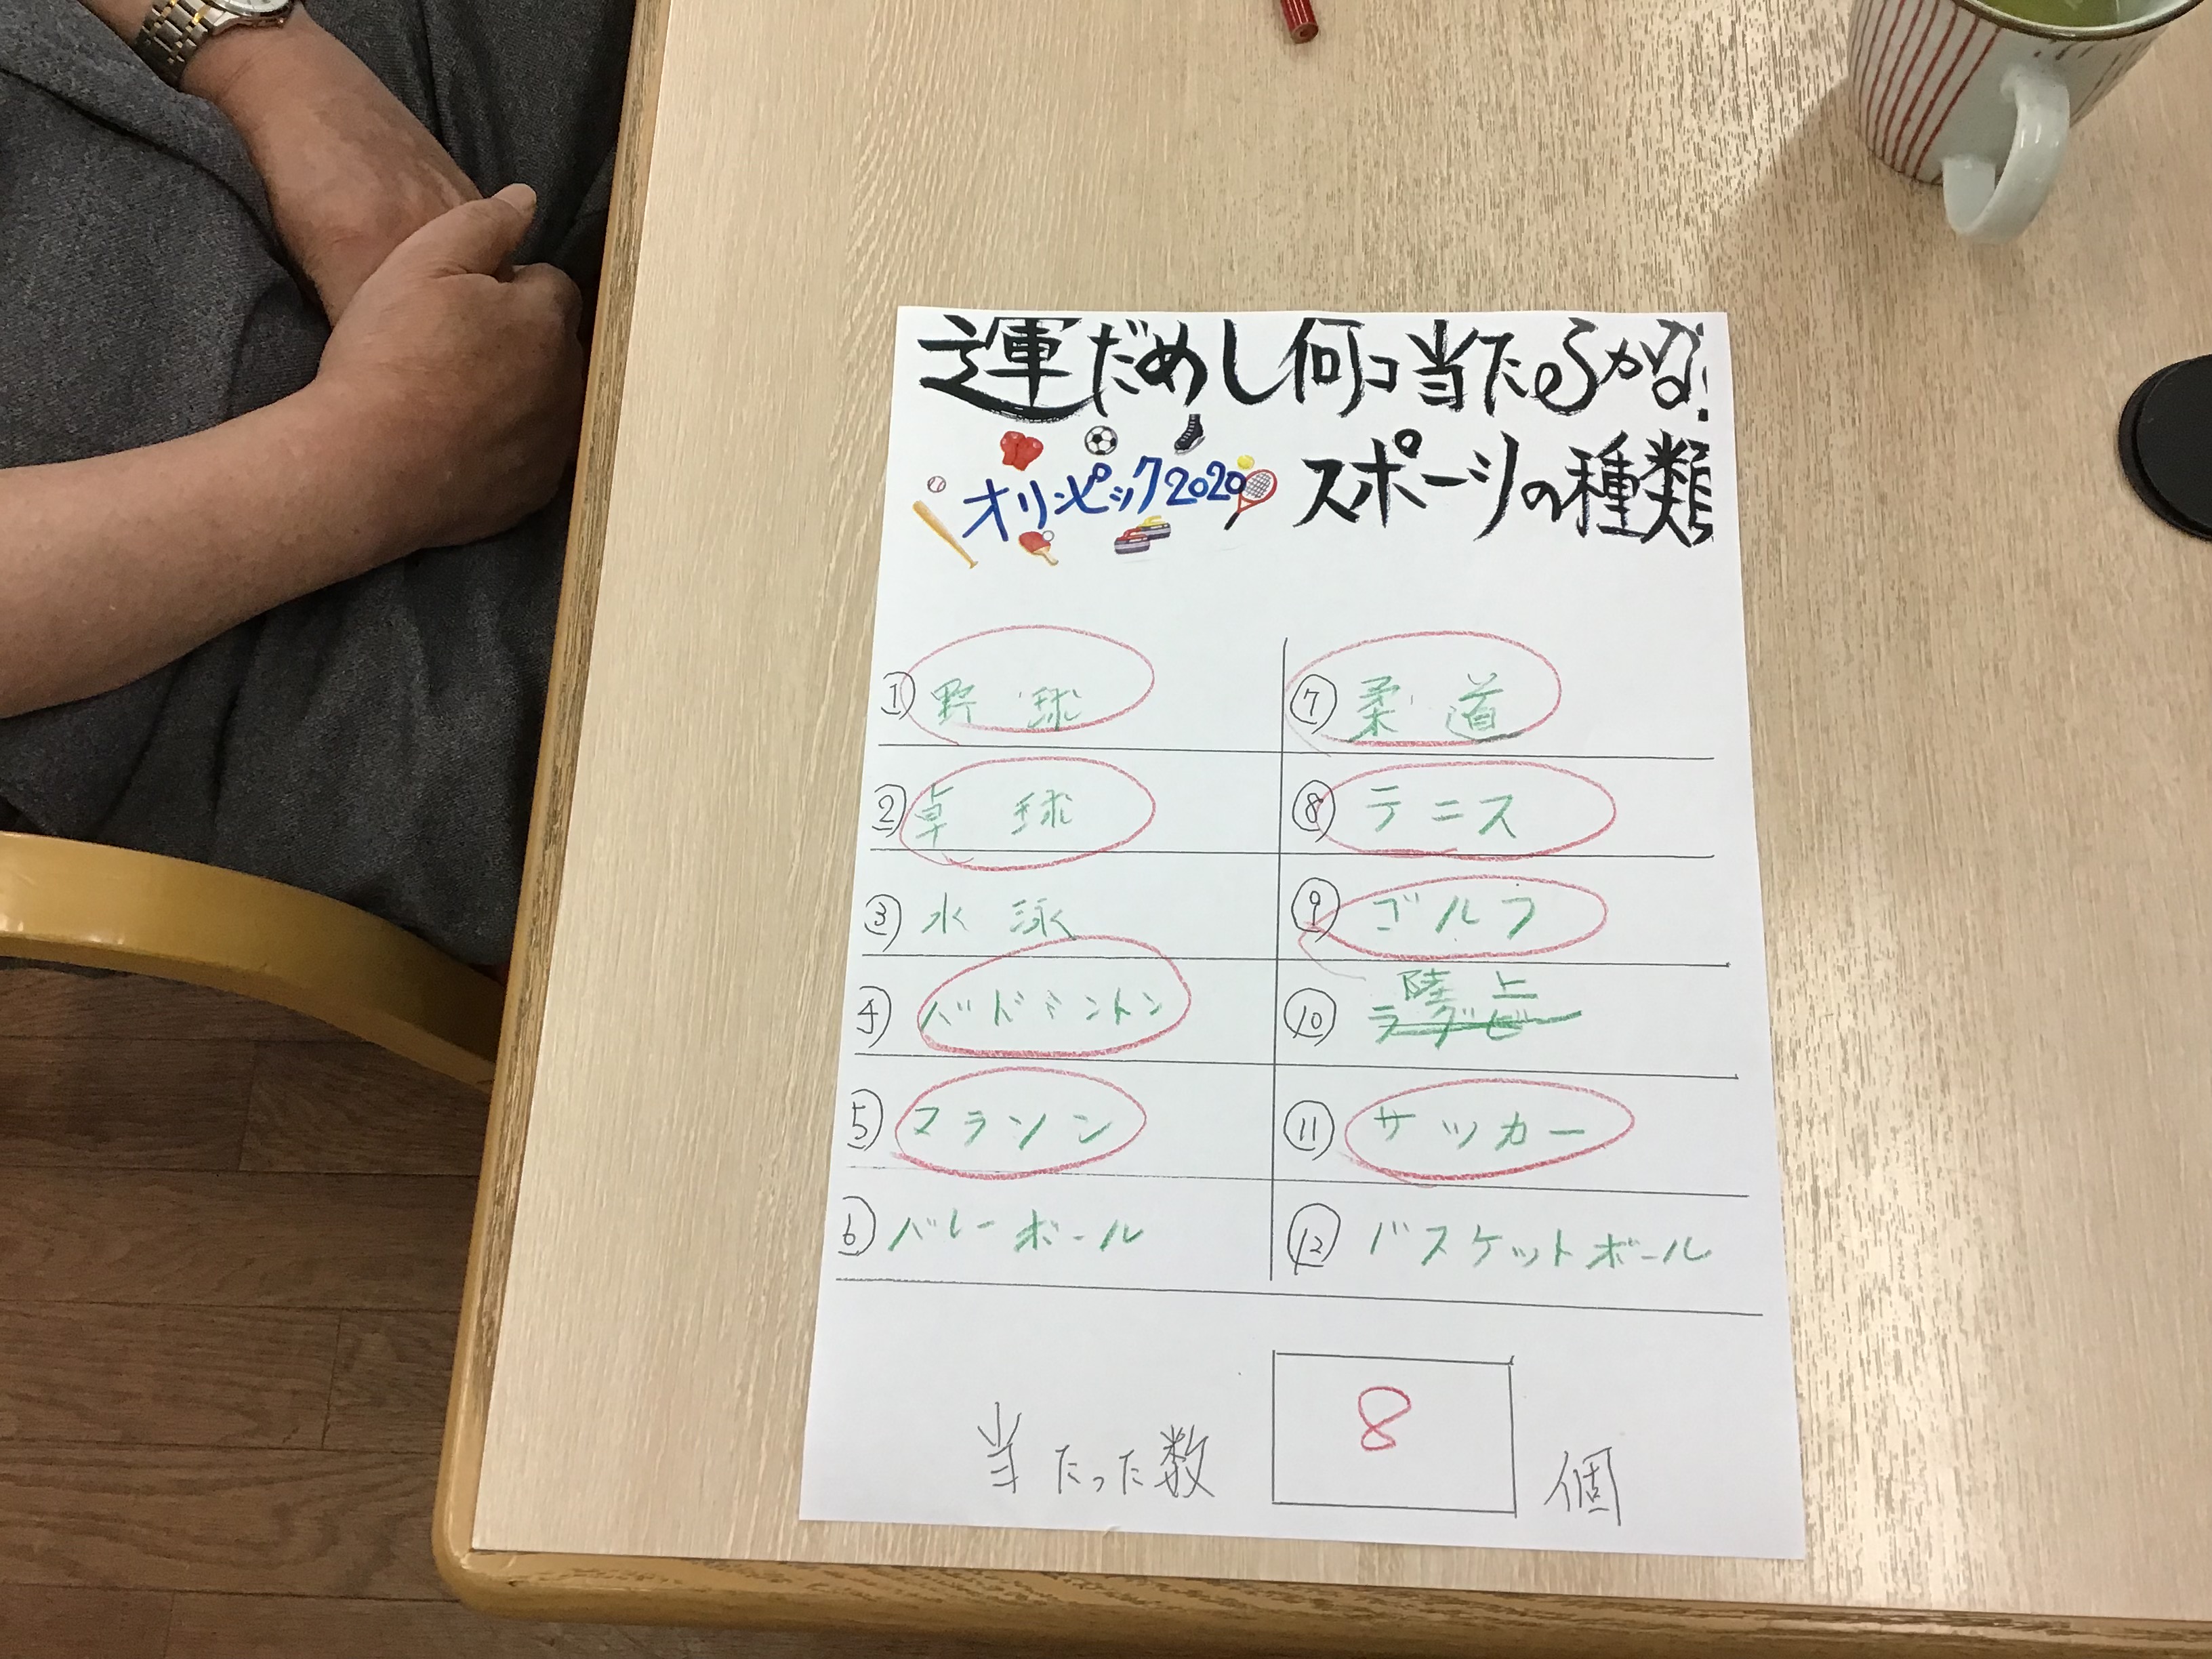 運だめし何コ当たるかな!
オリンピック2020 スポーツの種類
① 野球
② 卓球
③ 水泳
④ バドミントン
⑤ マラソン
⑥ バレーボール
⑦ 柔道
⑧ テニス
⑨ ゴルフ
⑩ 陸上
ラグビー
⑪ サッカー
⑫ バスケットボール
当たった数 8 個